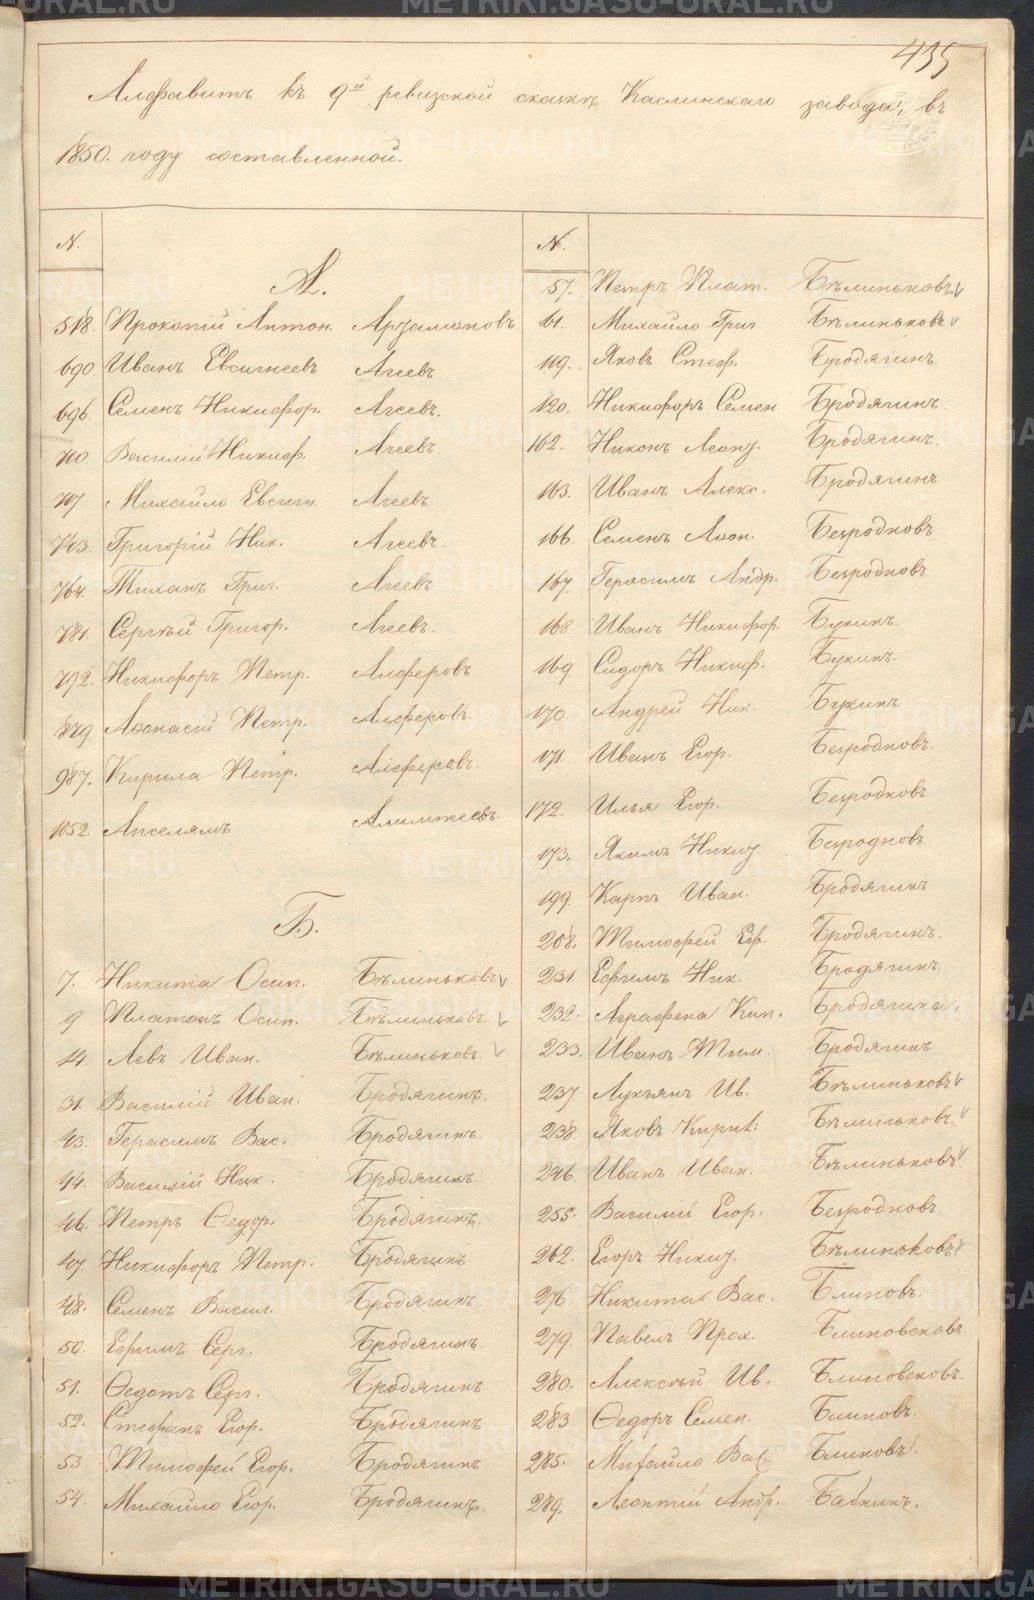 435
Алфавитъ къ 9й ревизской сказкѣ Каслинскаго завода, въ
1850. году составленной.
N.
А.
518. Прокопій Антон. Арзамановъ
690 Иванъ Евсигнеевъ Агѣевъ.
696 Семенъ Никифор. Агѣевъ.
710 Василій Никиф. Агѣевъ
717 Михайло Евсигн. Агѣевъ
763. Григорій Ник. Агѣевъ.
764. Тиханъ Григ. Агѣевъ
781. Сергѣй Григор. Агѣевъ.
792. Никифоръ Петр. Алферовъ.
879 Афонасій Петр. Алферовъ.
987. Кирила Петр. Алферовъ.
1052. Алимжеевъ.
Б.
7. Никита Осип. Бѣлиньковъ
9 Платонъ Осип. Бѣлиньковъ.
14. Левъ Иван. Бѣлиньковъ.
31. Василій Иван. Бродягинъ.
43. Герасимъ Вас. Бродягинъ.
44. Василій Ник. Бродягинъ.
46. Петръ Ѳедор. Бродягинъ.
47 Никифоръ Петр. Бродягинъ
48. Семенъ Васил. Бродягинъ.
50. Ефимъ Серг. Бродягинъ.
51. Ѳедотъ Серг. Бродягинъ
52. Стефанъ Егор. Бродягинъ
53. Тимофей Егор. Бродягинъ.
54. Михайло Егор. Бродягинъ.
N.
57. Петръ Плат. Бѣлиньковъ
61. Михайло Григ Бѣлиньковъ
119. Яковъ Стеф. Бродягинъ
120. Никифоръ Семен Бродягинъ
162. Никонъ Леон. Бродягинъ.
163. Иванъ Алекс. Бродягинъ
166 Семенъ Афон. Безродновъ
167. Герасимъ Андр. Безродновъ
168 Иванъ Никифор. Букинъ.
169 Сидоръ Никиф. Букинъ.
170. Андрей Ник. Букинъ
171. Иванъ Егор. Безродновъ
172. Илья Егор. Безродновъ
173. Якимъ Никиф. Безродновъ
199 Карпъ Иван. Бродягинъ
208. Тимофей Еф. Бродягинъ.
231. Ефимъ Ник. Бродягинъ
232. Аграфена Кип. Бродягина.
233. Иванъ Тим. Бродягинъ
237 Лукьянъ Ив. Бѣлиньковъ
238. Яковъ Кирил: Бѣлиньковъ.
246 Иванъ Иван. Бѣлиньковъ
255. Василій Егор. Безродновъ
262. Егоръ Никиф. Бѣлиньковъ
276. Никита Вас. Блиновъ.
279. Павелъ Прох. Блиновсковъ
280. Алексѣй Ив. Блиновсковъ.
283 Ѳедоръ Семен. Блиновъ.
285. Михайла Вас. Блиновъ.
289. Леонтій Андр. Бабкинъ.
METRIKI.GASO-URAL.RU